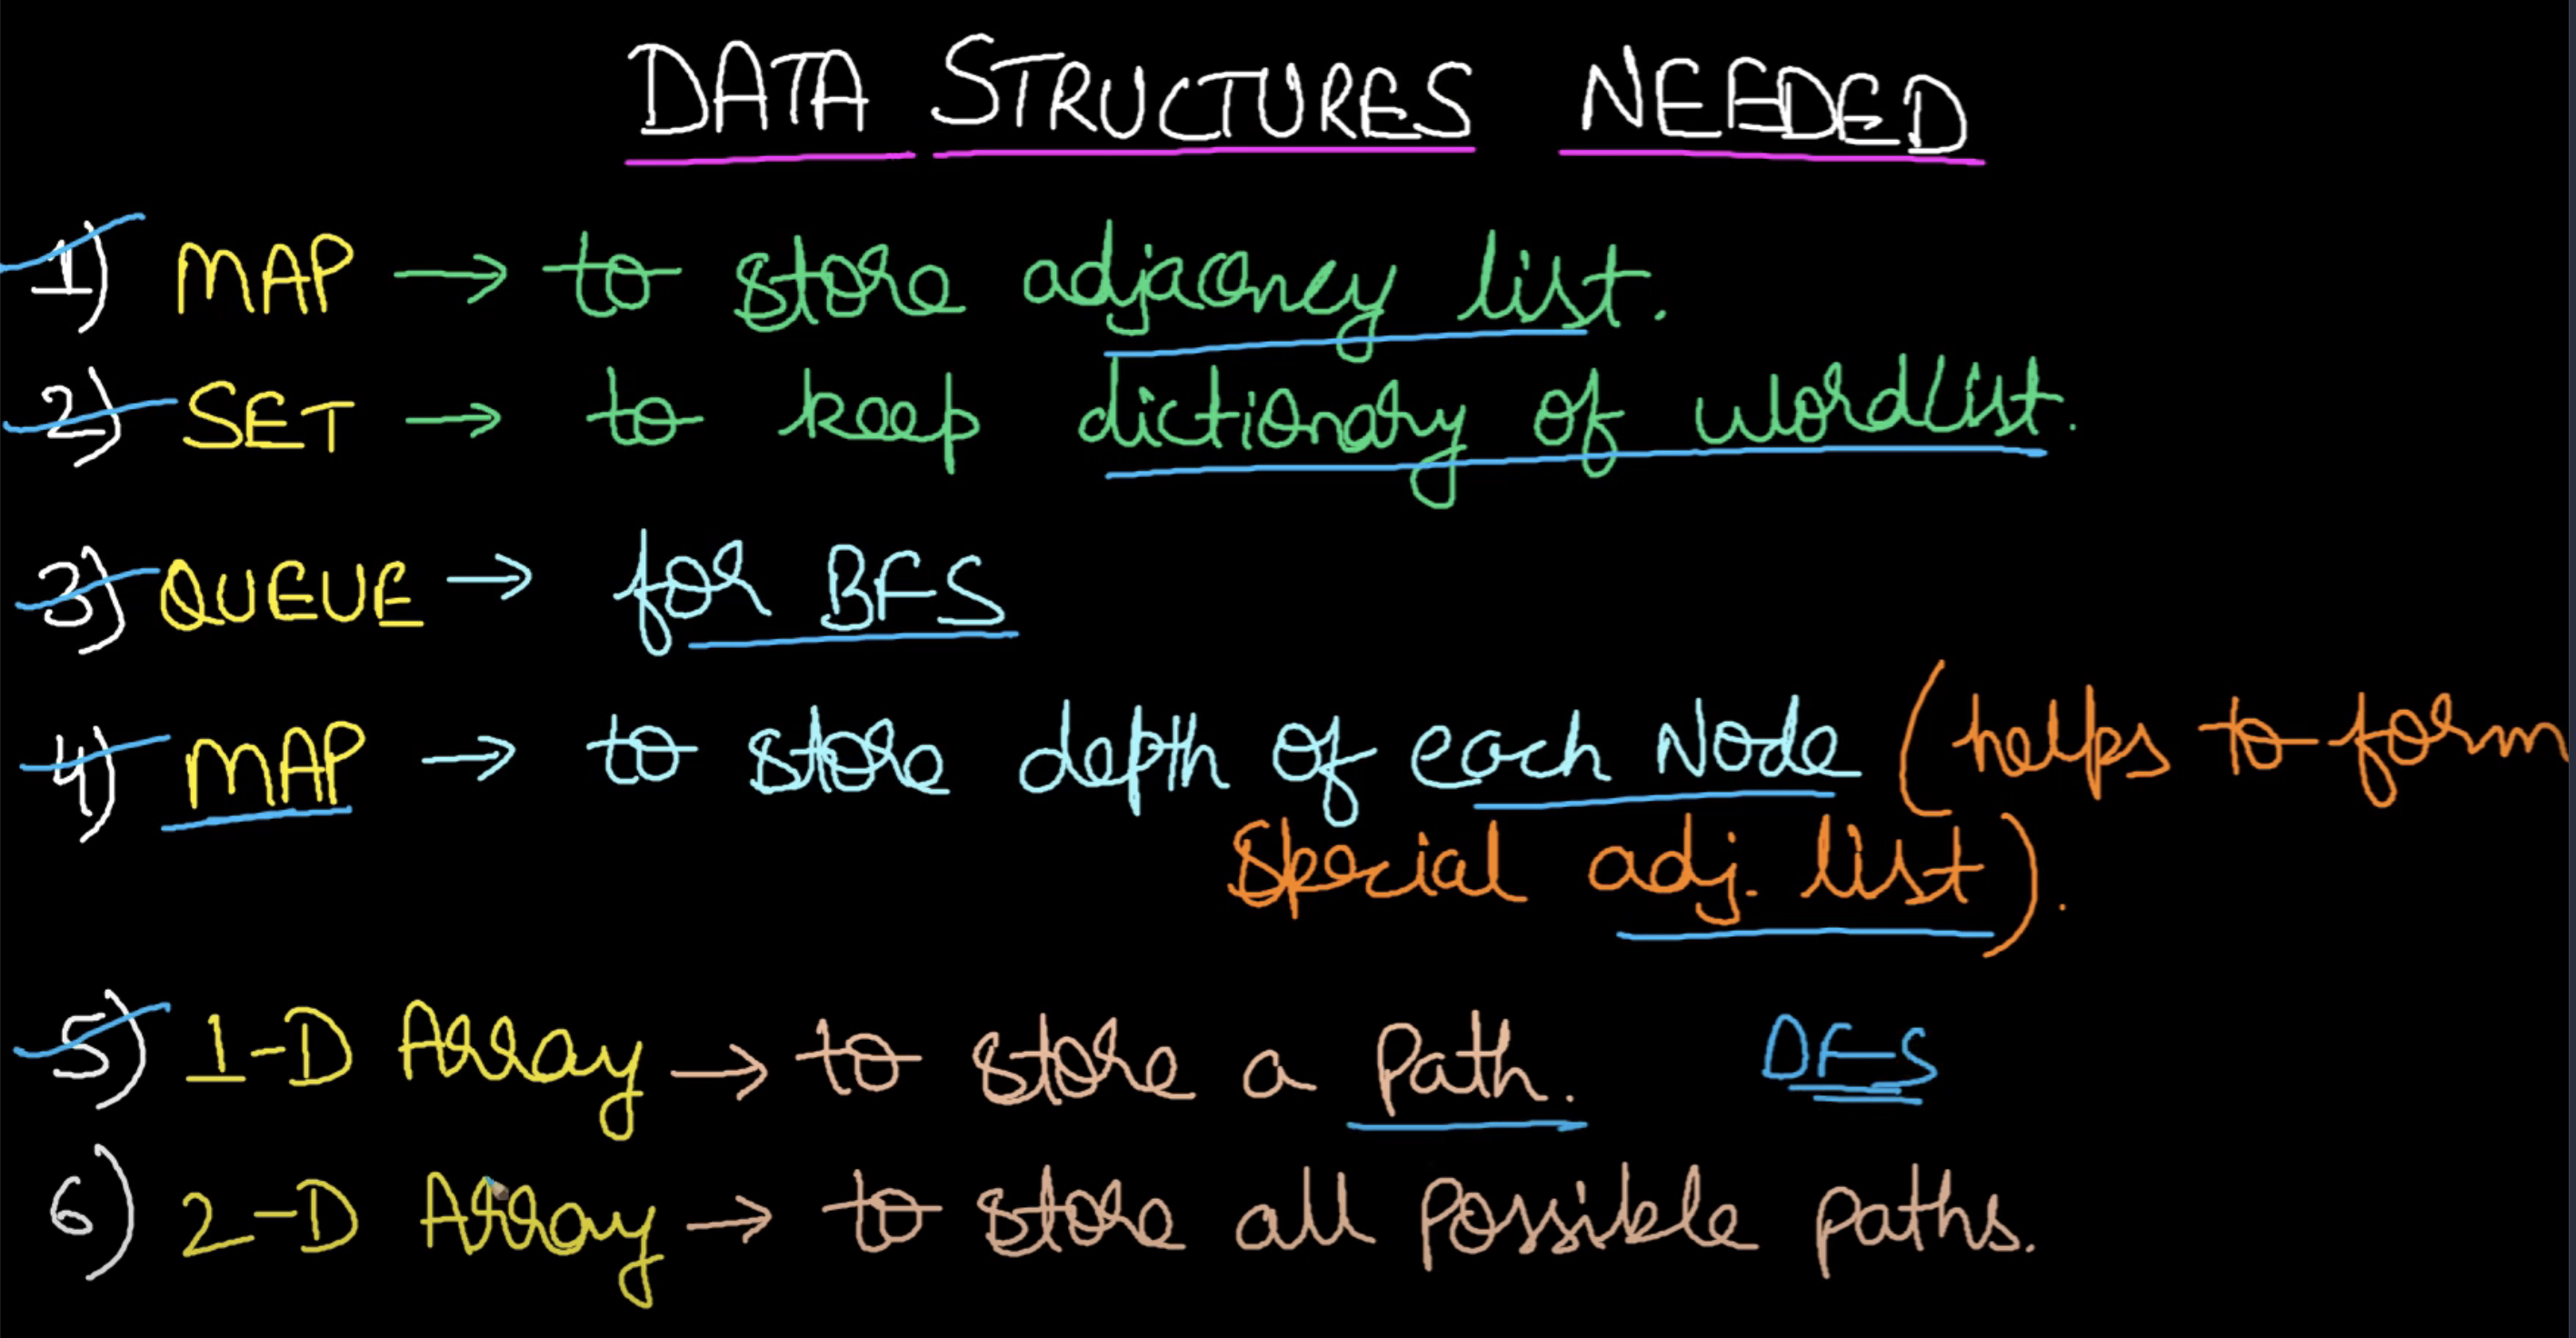 DATA STRUCTURES NEEDED
1) MAP → to store adjacency list.
2) SET → to keep dictionary of wordlist.
3) QUEUE → for BFS
4) MAP → to store depth of each Node (helps to form
special adj. list).
5) 1-D Array → to store a path. DFS
6) 2-D Array → to store all possible paths.